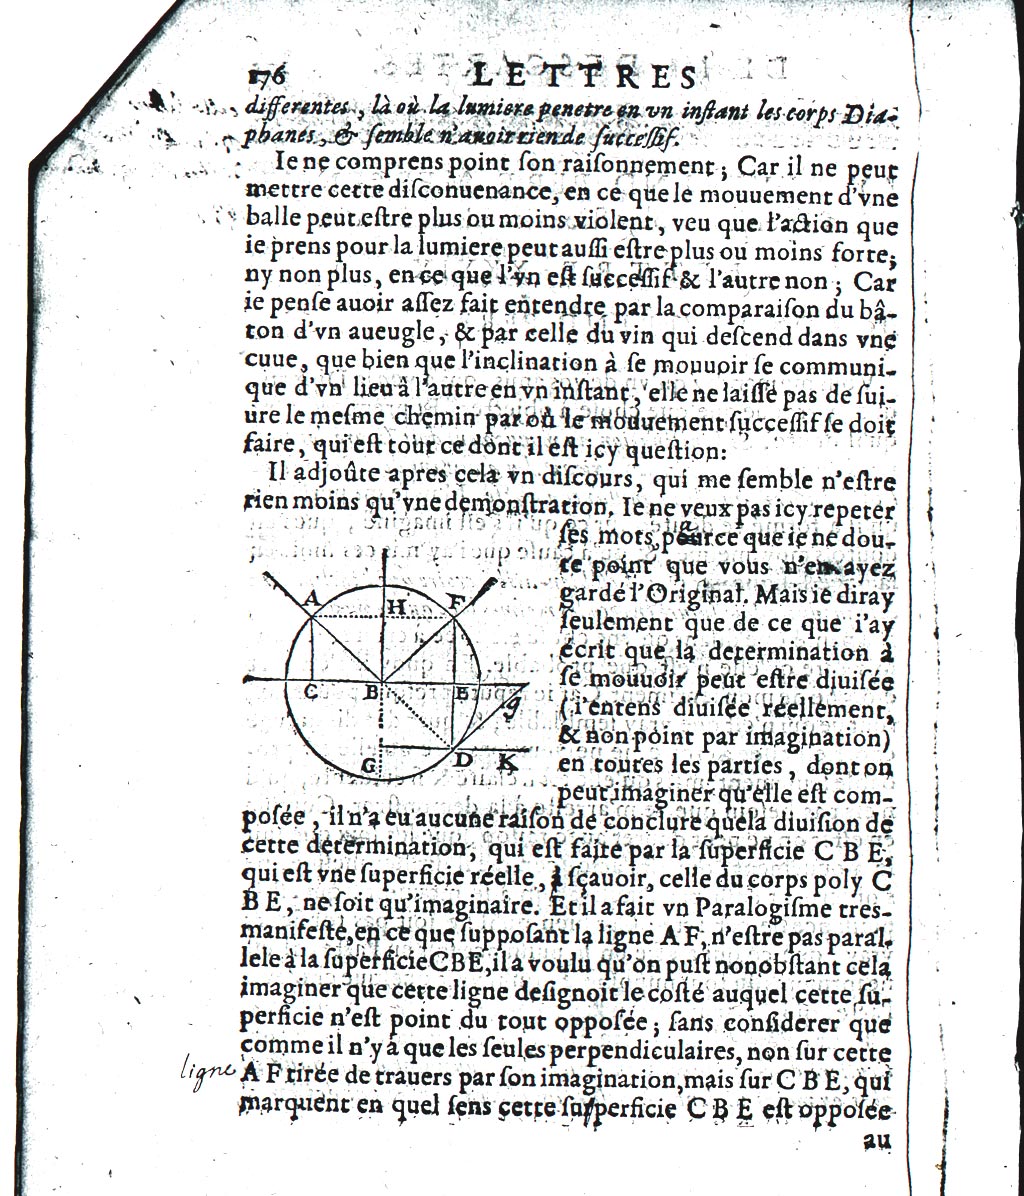 176 LETTRES
differentes, là où la lumiere penetre en vn inſtant les corps Dia-
phanes, & ſemble n'auoir rien de ſucceſſif.
Ie ne comprens point ſon raiſonnement; Car il ne peut
mettre cette diſconuenance, en ce que le mouuement d'vne
balle peut eſtre plus ou moins violent, veu que l'action que
ie prens pour la lumiere peut auſſi eſtre plus ou moins forte;
ny non plus, en ce que l'vn eſt ſucceſſif & l'autre non; Car
ie penſe auoir aſſez fait entendre par la comparaiſon du bâ-
ton d'vn aueugle, & par celle du vin qui deſcend dans vne
cuue, que bien que l'inclination à ſe mouuoir ſe communi-
que d'vn lieu à l'autre en vn inſtant, elle ne laiſſe pas de ſui-
ure le meſme chemin par où le mouuement ſucceſſif ſe doit
faire, qui eſt tout ce dont il eſt icy queſtion:
Il adjoûte apres cela vn diſcours, qui me ſemble n'eſtre
rien moins qu'vne demonſtration. Ie ne veux pas icy repeter
ſes mots, parce que ie ne dou-
te point que vous n'en ayez
gardé l'Original. Mais ie diray
ſeulement que de ce que i'ay
écrit que la determination à
ſe mouuoir peut eſtre diuiſée
(i'entens diuiſée réellement,
& non point par imagination)
en toutes les parties, dont on
peut imaginer qu'elle eſt com-
A H F
C B E g
G D K
poſée, il n'a eu aucune raiſon de conclure que la diuiſion de
cette determination, qui eſt faite par la ſuperficie C B E,
qui eſt vne ſuperficie réelle, à ſçauoir, celle du corps poly C
B E, ne ſoit qu'imaginaire. Et il a fait vn Paralogiſme tres-
manifeſte, en ce que ſuppoſant la ligne A F, n'eſtre pas paral-
lele à la ſuperficie CBE, il a voulu qu'on puſt nonobſtant cela
imaginer que cette ligne deſignoit le coſté auquel cette ſu-
perficie n'eſt point du tout oppoſée; ſans conſiderer que
comme il n'y a que les ſeules perpendiculaires, non ſur cette
ligne A F tirée de trauers par ſon imagination, mais ſur C B E, qui
marquent en quel ſens cette ſuperficie C B E eſt oppoſée
au